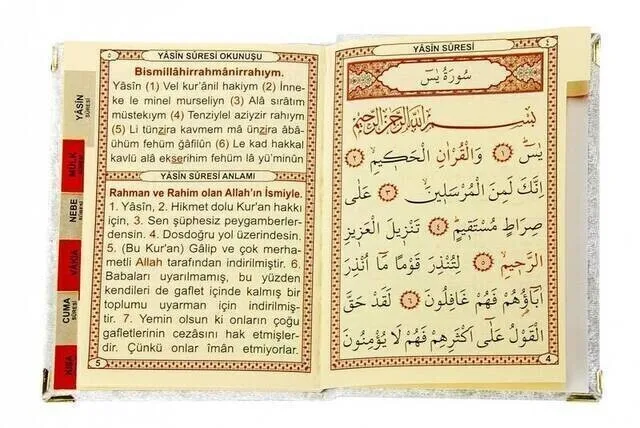 ٥
YÂSİN SÛRESİ OKUNUŞU
Bismillâhirrahmânirrahıym.
Yâsîn (1) Vel kur'ânil hakiym (2) İnne-
ke le minel murseliyn (3) Alâ sırâtım
müstekıym (4) Tenziylel aziyzir rahıym
(5) Li tünzira kavmem mâ ünzira âbâ-
ühüm fehüm ğâfilûn (6) Le kad hakkal
kavlü alâ ekserihim fehüm lâ yü'minûn
YÂSİN SÛRESİ ANLAMI
Rahman ve Rahim olan Allah'ın İsmiyle.
1. Yâsîn, 2. Hikmet dolu Kur'an hakkı
için, 3. Sen şüphesiz peygamberler-
densin. 4. Dosdoğru yol üzerindesin.
5. (Bu Kur'an) Gâlip ve çok merha-
metli Allah tarafından indirilmiştir. 6.
Babaları uyarılmamış, bu yüzden
kendileri de gaflet içinde kalmış bir
toplumu uyarman için indirilmiş-
tir. 7. Yemin olsun ki onların çoğu
gafletlerinin cezasını hak etmişler-
dir. Çünkü onlar îmân etmiyorlar.
5
YÂSİN
SÛRESİ
MÜLK
SÛRESİ
NEBE
SÛRESİ
VÂKIA
CUMA
SÛRESİ
KISA
YÂSİN SÛRESİ
٤
سُورَةُ يٰسٓ
بِسْمِ اللّٰهِ الرَّحْمٰنِ الرَّحِيمِ
يٰسٓ ﴿١﴾ وَالْقُرْاٰنِ الْحَكِيمِ ﴿٢﴾
اِنَّكَ لَمِنَ الْمُرْسَلِينَ ﴿٣﴾ عَلٰى
صِرَاطٍ مُسْتَقِيمٍ ﴿٤﴾ تَنْزِيلَ الْعَزِيزِ
الرَّحِيمِ ﴿٥﴾ لِتُنْذِرَ قَوْمًا مَٓا اُنْذِرَ
اٰبَٓاؤُهُمْ فَهُمْ غَافِلُونَ ﴿٦﴾ لَقَدْ حَقَّ
الْقَوْلُ عَلٰٓى اَكْثَرِهِمْ فَهُمْ لَا يُؤْمِنُونَ
4